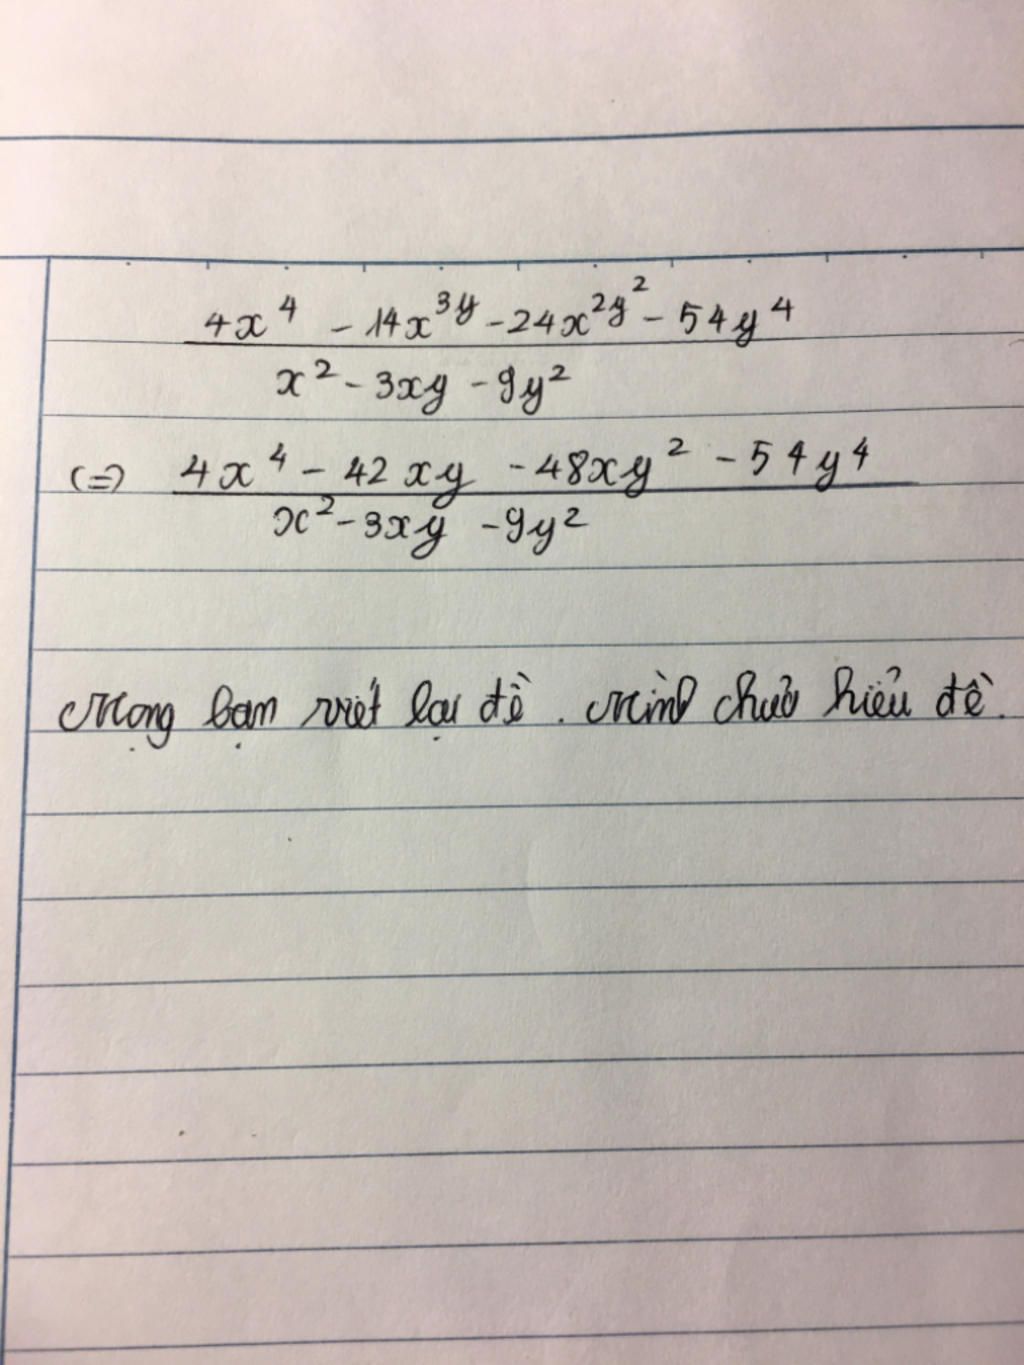 4x⁴ - 14x³ʸ - 24x²ʸ² - 54y⁴
x² - 3xy - 9y²
(=) 4x⁴ - 42xy - 48xy² - 54y⁴
x² - 3xy - 9y²
Mong bạn viết lại đề. Mình chưa hiểu đề.